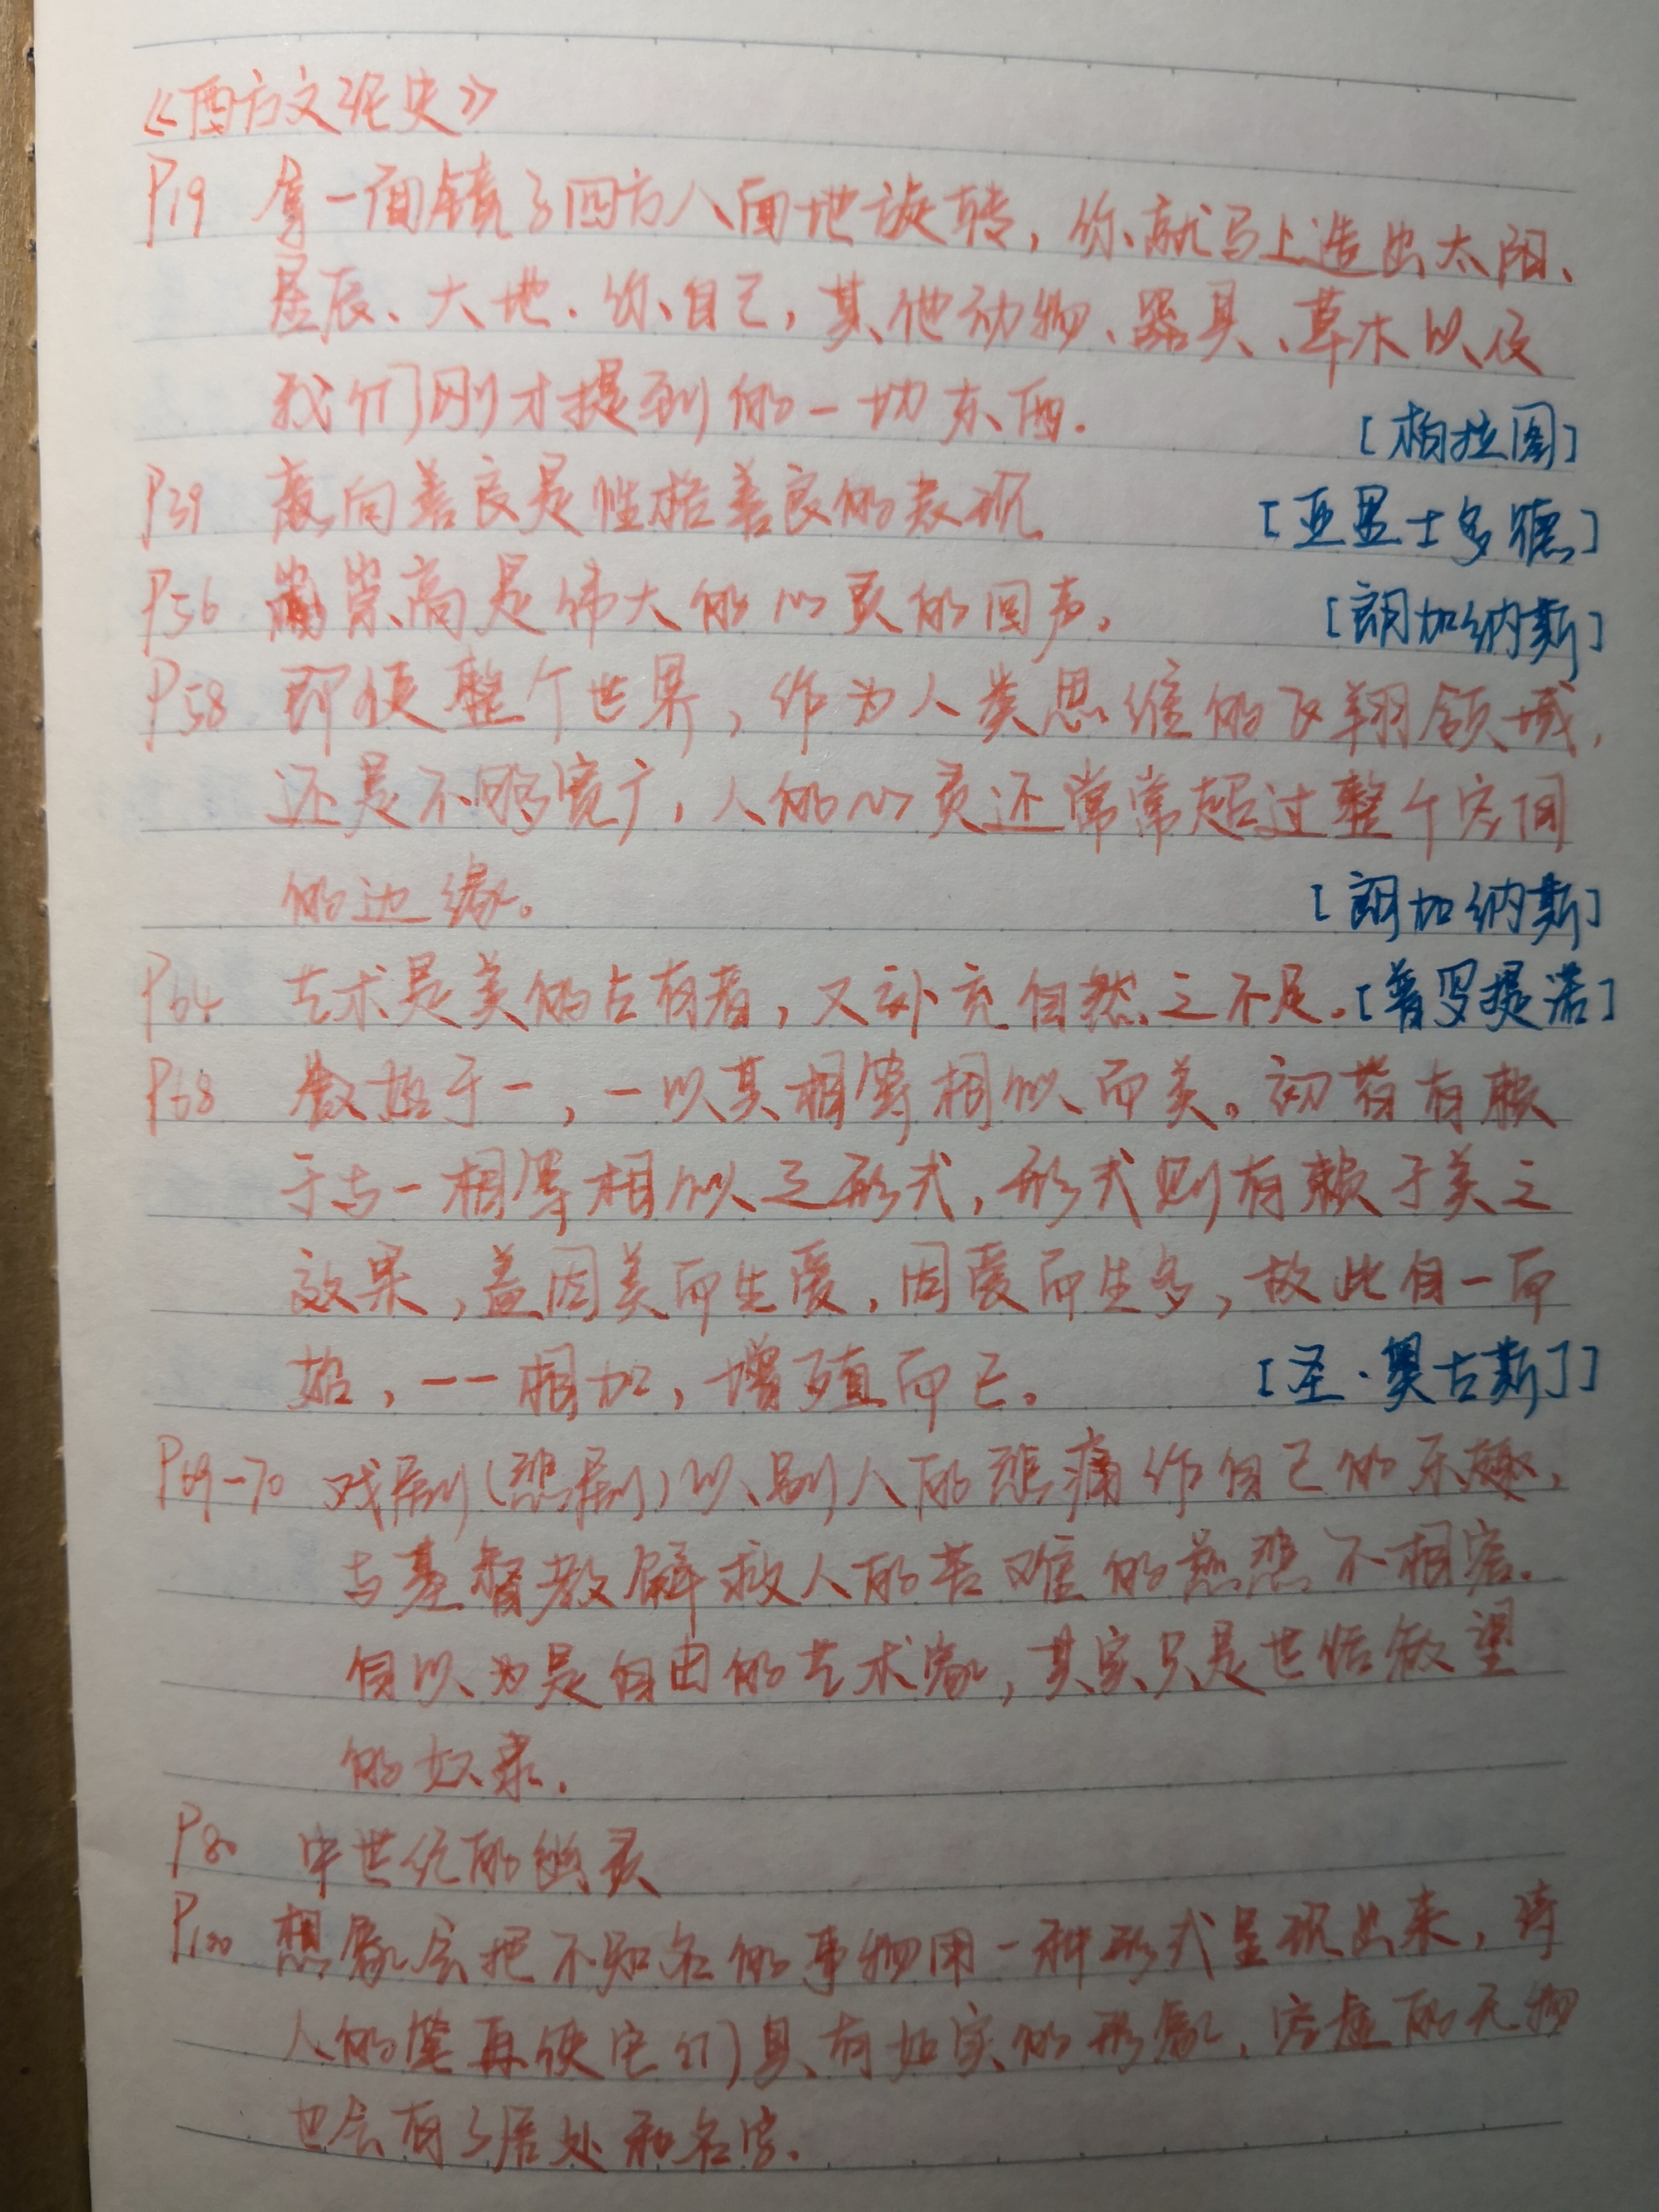 《西方文论史》
P19 拿一面镜子四方八面地旋转，你就马上造出太阳、
星辰、大地、你自己，其他动物、器具、草木以及
我们刚才提到的一切东西.
[柏拉图]
P39 意向善良是性格善良的表现 [亚里士多德]
P56 崇高是伟大的心灵的回声。 [朗加纳斯]
P58 即使整个世界，作为人类思维的飞翔领域，
还是不够宽广，人的心灵还常常超过整个空间
的边缘。 [朗加纳斯]
P64 艺术是美的占有者，又补充自然之不足。[普罗提诺]
P68 数始于一，一以其相等相似而美。初者有赖
于与一相等相似之形式，形式则有赖于美之
效果，盖因美而生爱，因爱而生多，故此自一而
始，一一相加，增殖而已。 [圣·奥古斯丁]
P69-70 戏剧（悲剧）以别人的悲痛作自己的乐趣，
与基督教解救人的苦难的慈悲不相容。
自以为是自由的艺术家，其实只是世俗欲望
的奴隶.
P80 中世纪的幽灵
P100 想象会把不知名的事物用一种形式呈现出来，诗
人的笔再使它们具有如实的形象，空虚的无物
也会有了居处和名字.